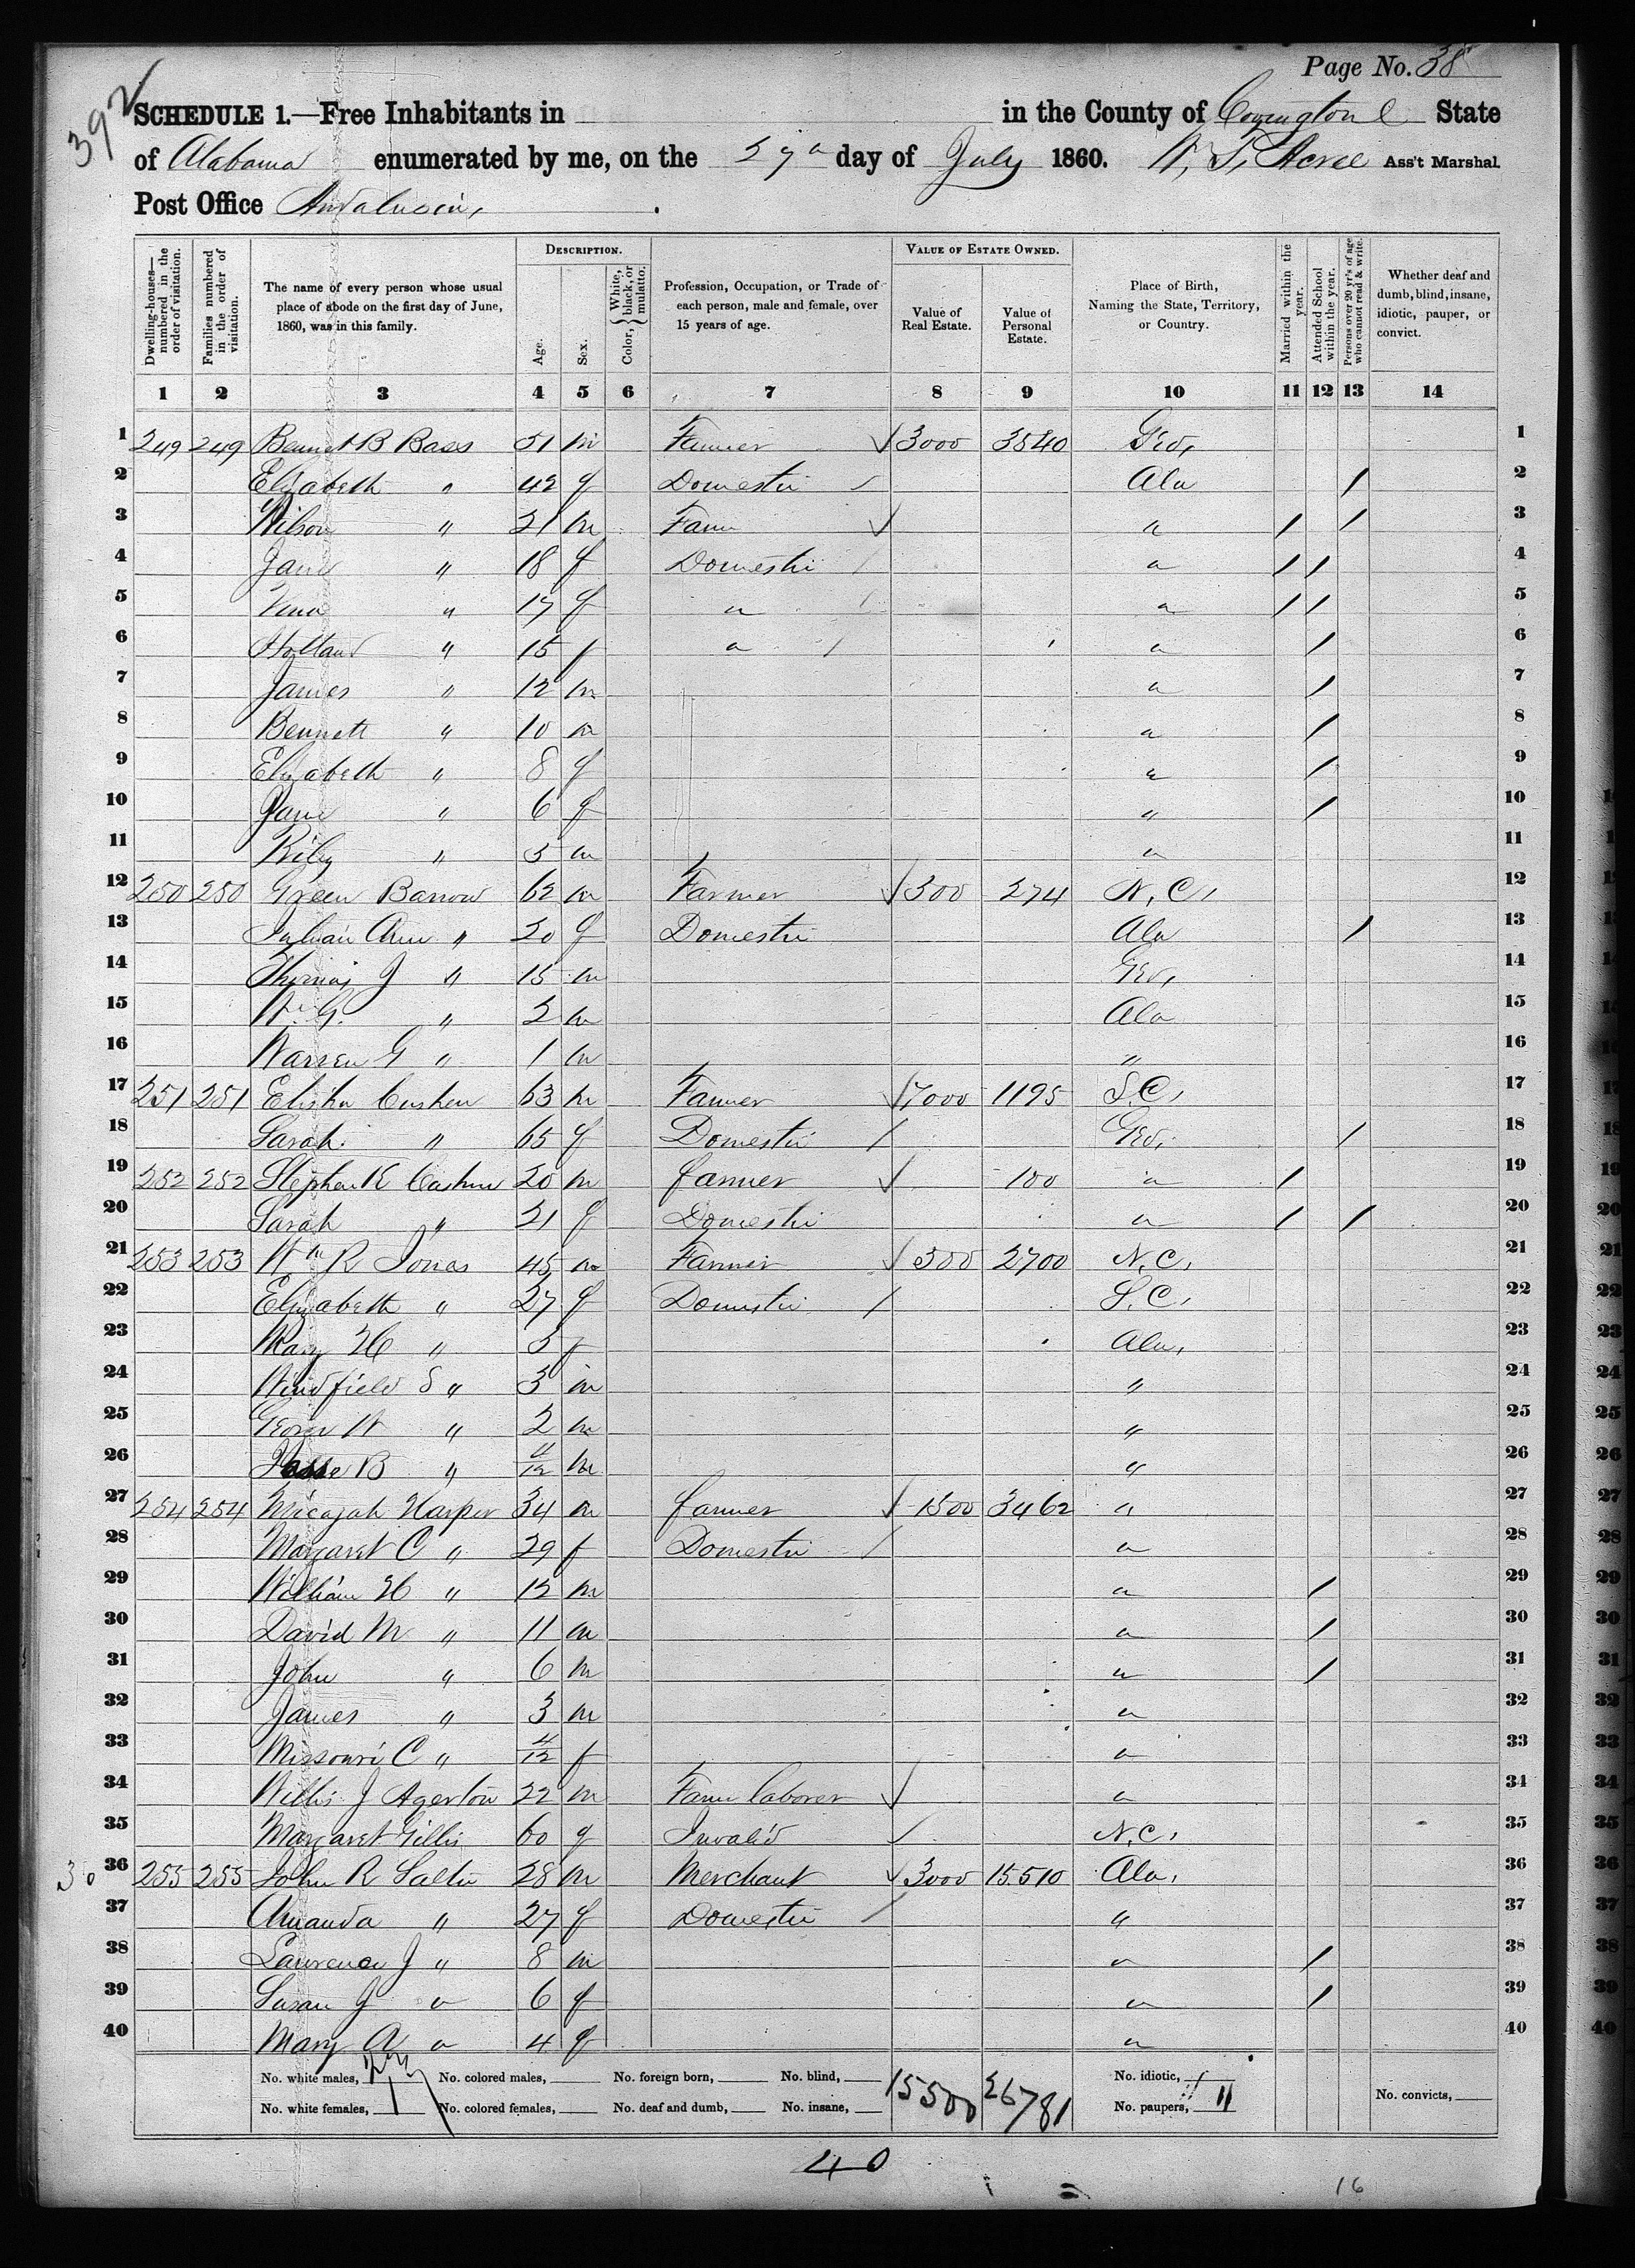 Page No. 38
392
SCHEDULE 1.—Free Inhabitants in in the County of Covington State
of Alabama enumerated by me, on the day of July 1860. W. T. Acree Ass't Marshal
Post Office Andalusia,
Dwelling-houses—numbered in the order of visitation.
Families numbered in the order of visitation.
The name of every person whose usual place of abode on the first day of June, 1860, was in this family.
DESCRIPTION.
Age.
Sex.
Color, { White, black, or mulatto.
Profession, Occupation, or Trade of each person, male and female, over 15 years of age.
VALUE OF ESTATE OWNED.
Value of Real Estate.
Value of Personal Estate.
Place of Birth, Naming the State, Territory, or Country.
Married within the year.
Attended School within the year.
Persons over 20 yr's of age who cannot read & write.
Whether deaf and dumb, blind, insane, idiotic, pauper, or convict.
1 2 3 4 5 6 7 8 9 10 11 12 13 14
1 249 249 Bennet B Bass 51 m Farmer √ 3000 3540 Geo, 1
2 Elizabeth " 42 f Domestic Ala / 2
3 Wilson " 21 m Farm √ " / / 3
4 Jane " 18 f Domestic / " / / 4
5 " 17 f " / " / / 5
6 Holland " 15 f " / " / 6
7 James " 12 m " / 7
8 Bennett " 10 m " / 8
9 Elizabeth " 8 f " / 9
10 Jane " 6 f " / 10
11 Riley " m " 11
12 250 250 Green Barrow 62 m Farmer √ 300 274 N. C, 12
13 Julian Ann " 20 f Domestic Ala / 13
14 Thomas J " 15 m Geo, 14
15 W. G. " 2 m Ala 15
16 Warren G " 1 m " 16
17 251 251 Elisha Cushen 63 m Farmer √ 7000 1195 S. C, 17
18 Sarah " 65 f Domestic / Geo, / 18
19 252 252 Stephen E 20 m farmer √ 100 " / 19
20 Sarah " 21 f Domestic " / / 20
21 253 253 Wm R Jones 45 m Farmer √ 300 2700 N. C, 21
22 Elizabeth " 27 f Domestic / S. C, 22
23 Mary H " 5 f Ala, 23
24 Windfield S " 3 m " 24
25 George W " 2 m " 25
26 Jesse B " 4/12 m " 26
27 254 254 Micajah Harper 34 m farmer √ 1500 3462 " 27
28 Margaret C " 29 f Domestic / " 28
29 William H " 12 m " / 29
30 David M " 11 m " / 30
31 John " 6 m " / 31
32 James " 3 m " 32
33 Missouri C " 4/12 f " 33
34 Willis J Agerton 22 m Farm laborer √ " 34
35 Margaret Gillis 60 f Invalid N. C, 35
36 255 255 John R Salter 28 m Merchant √ 3000 15.510 Ala, 36
37 Amanda " 27 f Domestic / " 37
38 Lawrence J " 8 m " / 38
39 Susan J " 6 f " / 39
40 Mary A " 4 f " 40
No. white males, No. colored males, No. foreign born, No. blind, 15500 26781 No. idiotic,
No. white females, No. colored females, No. deaf and dumb, No. insane, No. paupers, No. convicts,
40
16